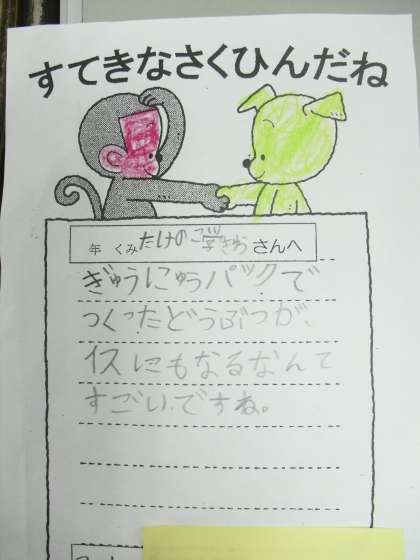 すてきなさくひんだね
年 くみ たけのこ学きゅう さんへ
ぎゅうにゅうパックで
つくったどうぶつが、
イスにもなるなんて
すごいですね。